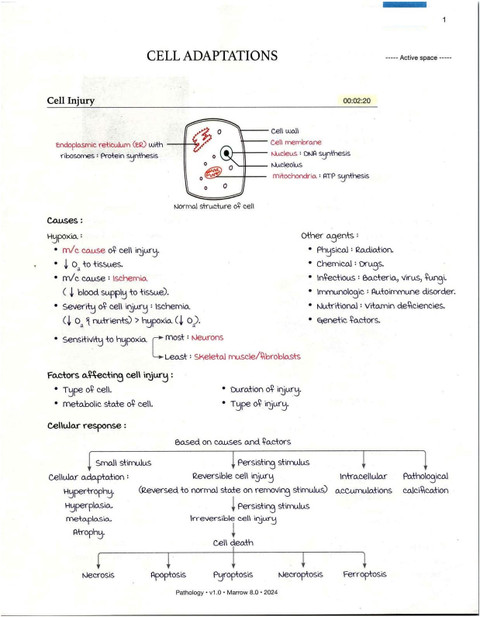 1
CELL ADAPTATIONS
----- Active space -----
Cell Injury
00:02:20
Endoplasmic reticulum (ER) with
ribosomes : Protein synthesis
Cell wall
Cell membrane
Nucleus : DNA synthesis
Nucleolus
mitochondria : ATP synthesis
Normal structure of cell
Causes :
Hypoxia :
• m/c cause of cell injury.
• ↓ O₂ to tissues.
• m/c cause : Ischemia
(↓ blood supply to tissue).
• Severity of cell injury : Ischemia
(↓ O₂ & nutrients) > hypoxia (↓ O₂).
• Sensitivity to hypoxia → most : Neurons
→ Least : Skeletal muscle/fibroblasts
Other agents :
• Physical : Radiation.
• Chemical : Drugs.
• Infectious : Bacteria, virus, fungi.
• Immunologic : Autoimmune disorder.
• Nutritional : Vitamin deficiencies.
• Genetic factors.
Factors affecting cell injury :
• Type of cell.
• metabolic state of cell.
• Duration of injury.
• Type of injury.
Cellular response :
Based on causes and factors
Small stimulus
Cellular adaptation :
Hypertrophy.
Hyperplasia.
metaplasia.
Atrophy.
Persisting stimulus
Reversible cell injury
(Reversed to normal state on removing stimulus)
↓ Persisting stimulus
Irreversible cell injury
Intracellular
accumulations
Pathological
calcification
Cell death
Necrosis
Apoptosis
Pyroptosis
Necroptosis
Ferroptosis
Pathology • v1.0 • Marrow 8.0 • 2024